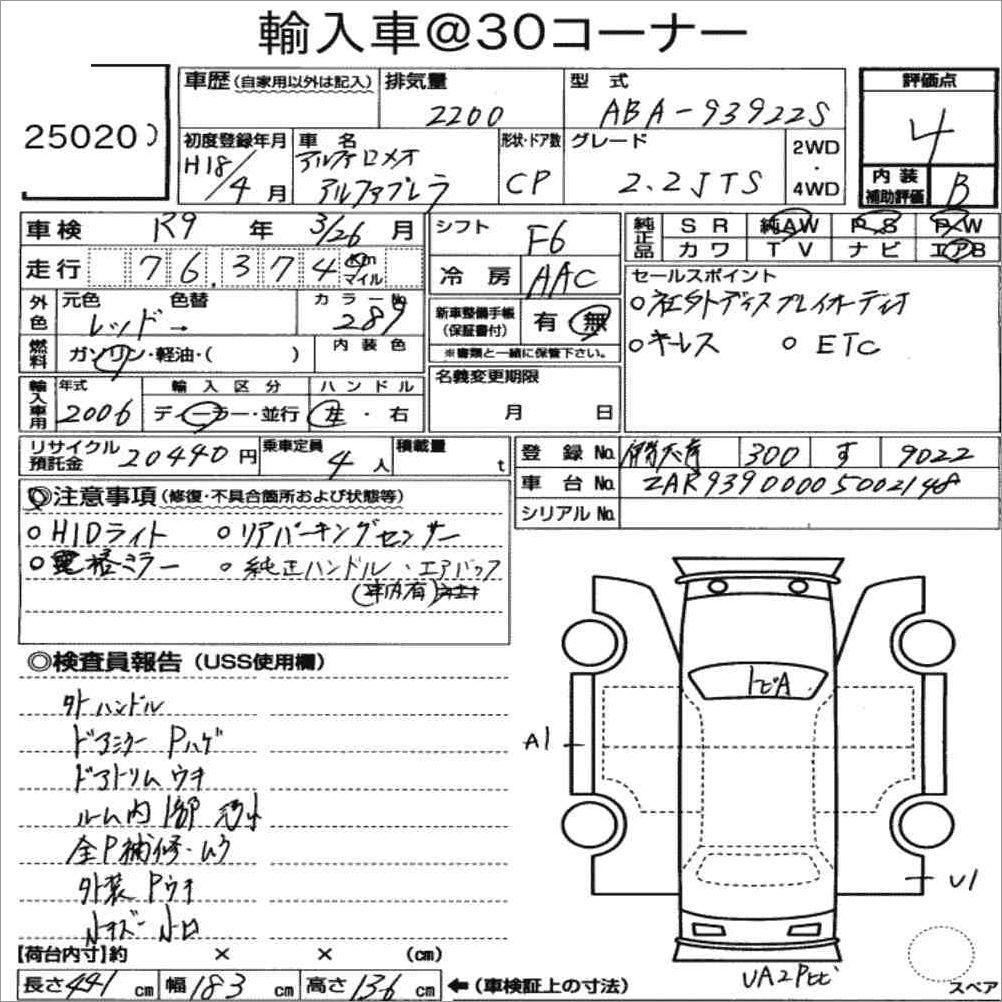 輸入車@30コーナー
25020
車歴(自家用以外は記入) 排気量 2200 型式 ABA-93922S 評価点 4
初度登録年月 H18/4月 車名 アルファロメオ アルファブレラ 形状・ドア数 CP グレード 2.2JTS 2WD・4WD 内装補助評価 B
車検 R9年 3/26月 シフト F6 純正品 SR 純AW P.S P.W
走行 76,374 km マイル 冷房 AAC カワ TV ナビ エアB
外色 元色 レッド 色替 → カラーNo. 289
新車整備手帳(保証書付) 有 無
※書類と一緒に保管下さい。
セールスポイント
社外ディスプレイオーディオ
キーレス ETC
燃料 ガソリン・軽油・( ) 内装色
名義変更期限 月 日
輸入車用 年式 2006 輸入区分 ディーラー・並行 ハンドル 左・右
リサイクル預託金 20440円 乗車定員 4人 積載量 t
登録No. 300 す 9022
車台No. ZAR93900005002148
シリアルNo.
◎注意事項(修復・不具合箇所および状態等)
HIDライト リアパーキングセンサー
電格ミラー 純正ハンドル・エアバック
(車内有)
◎検査員報告(USS使用欄)
外ハンドル
ドアミラー Pハゲ
ドアトリム ウキ
ルーム内 1部
全P補修・ムラ
外装 Pウキ
小キズ 小凹
トビA
A1
U1
UA2Pヒビ
スペア
【荷台内寸】約 × × (cm)
長さ 441 cm 幅 183 cm 高さ 136 cm ←(車検証上の寸法)